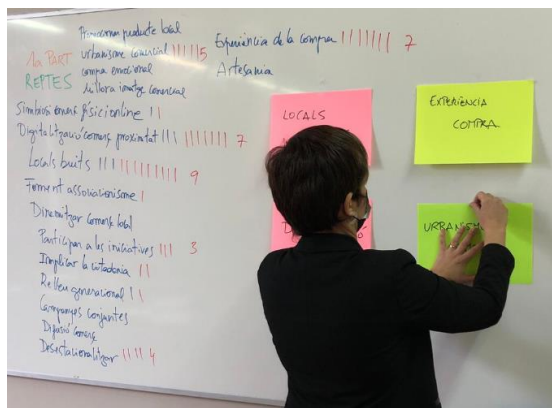 1a PART
REPTES
Promocionar producte local
urbanisme comercial 5
compra emocional
millora imatge comercial
Experiència de la compra 7
Artesania
Simbiosi comerç físic i online
Digitalització comerç proximitat 7
Locals buits 9
Foment associacionisme
Dinamitzar comerç local
Participar a les iniciatives 3
Implicar la ciutadania
Relleu generacional
Campanyes conjuntes
Difusió comerç
Desestacionalitzar 4
LOCALS
EXPERIÈNCIA
COMPRA
URBANISM